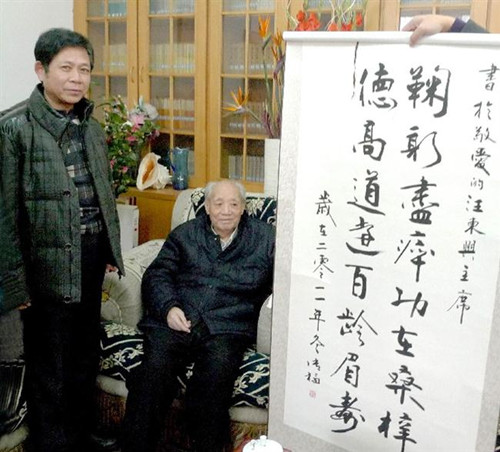 書於敬愛的汪東興主席
鞠躬盡瘁功在桑梓
德高道遠百齡眉壽
歲在二零一一年冬